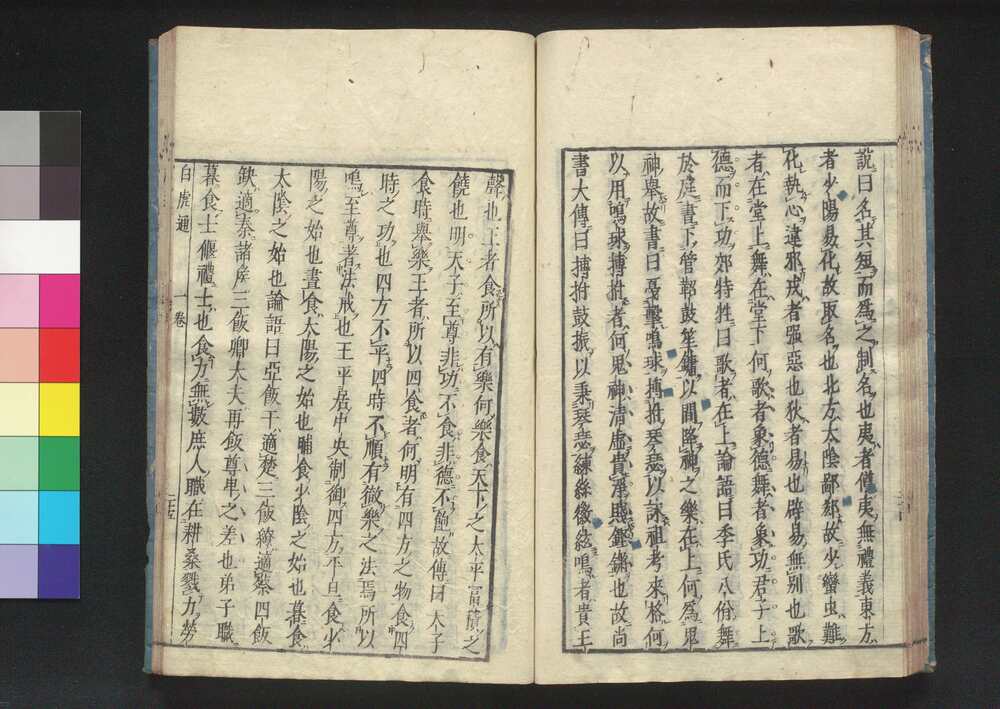 說曰名其短而爲之制名也夷者僔夷無禮義東方
者少陽易化故取名也北方太陰鄙郄故少蠻虫難
化執心違邪戎者强惡也狄者易也辟易無別也歌
者在堂上舞在堂下何歌者象德舞者象功君子上
德而下功郊特牲曰歌者在上論語曰季氏八佾舞
於庭書下管鞀鼓笙鏞以間降神之樂在上何爲鬼
神舉故書曰戞擊鳴球搏拊琴瑟以詠祖考來格何
以用鳴球搏拊者何鬼神清虛貴淨賤鏗鏘也故尚
書大傳曰搏拊鼓振以秉琴瑟練絲徽絃鳴者貴王
聲也王者食所以有樂何樂食天下之太平富積之
饒也明天子至尊非功不食非德不飽故傳曰天子
食時舉樂王者所以四食者何明有四方之物食四
時之功也四方不平四時不順有徹樂之法焉所以
鳴至尊者法戒也王平居中央制御四方平旦食少
陽之始也晝食太陽之始也晡食少陰之始也暮食
太陰之始也論語曰亞飯干適楚三飯繚適蔡四飯
缺適秦諸侯三飯卿大夫再飯尊卑之差也弟子職
暮食士偃禮士也食力無數庶人職在耕桑戮力勞
白虎通 一卷